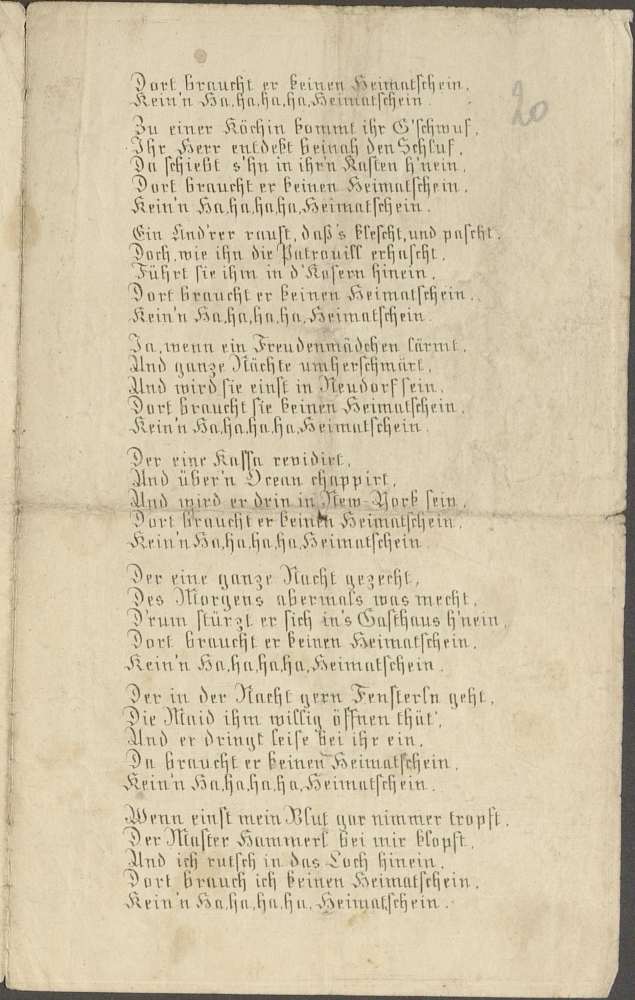 Dort braucht er keinen Heimatschein,
Kein'n Ha,ha,ha,ha,Heimatschein.
20
Zu einer Köchin kommt ihr G'schwuf,
Ihr Herr entdekt beinah den Schluf,
Da schiebt s'hn in ihr'n Kasten h'nein,
Dort braucht er keinen Heimatschein,
Kein'n Ha,ha,ha,ha,Heimatschein.
Ein And'rer rauft, daß's klescht, und pascht,
Doch, wie ihn die Patrouill erhascht,
Führt sie ihm in d'Kasern hinein,
Dort braucht er keinen Heimatschein,
Kein'n Ha,ha,ha,ha,Heimatschein.
Ja, wenn ein Freudenmädchen lärmt,
Und ganze Nächte umherschwärt,
Und wird sie einst in Neudorf sein,
Dort braucht sie keinen Heimatschein,
Kein'n Ha,ha,ha,ha,Heimatschein.
Der eine Kassa revidirt,
Und über'n Ocean chappirt,
Und wird er drin in New-York sein,
Dort braucht er keinen Heimatschein,
Kein'n Ha,ha,ha,ha,Heimatschein.
Der eine ganze Nacht gezecht,
Des Morgens abermals was mecht,
D'rum stürzt er sich in's Gasthaus h'nein,
Dort braucht er keinen Heimatschein,
Kein'n Ha,ha,ha,ha,Heimatschein.
Der in der Nacht gern Fensterln geht,
Die Maid ihm willig öffnen thät',
Und er dringt leise bei ihr ein,
Da braucht er keinen Heimatschein,
Kein'n Ha,ha,ha,ha,Heimatschein.
Wenn einst mein Blut gar nimmer tropft,
Der Master Hammerl bei mir klopft,
Und ich rutsch in das Loch hinein,
Dort brauch ich keinen Heimatschein,
Kein'n Ha,ha,ha,ha, Heimatschein.